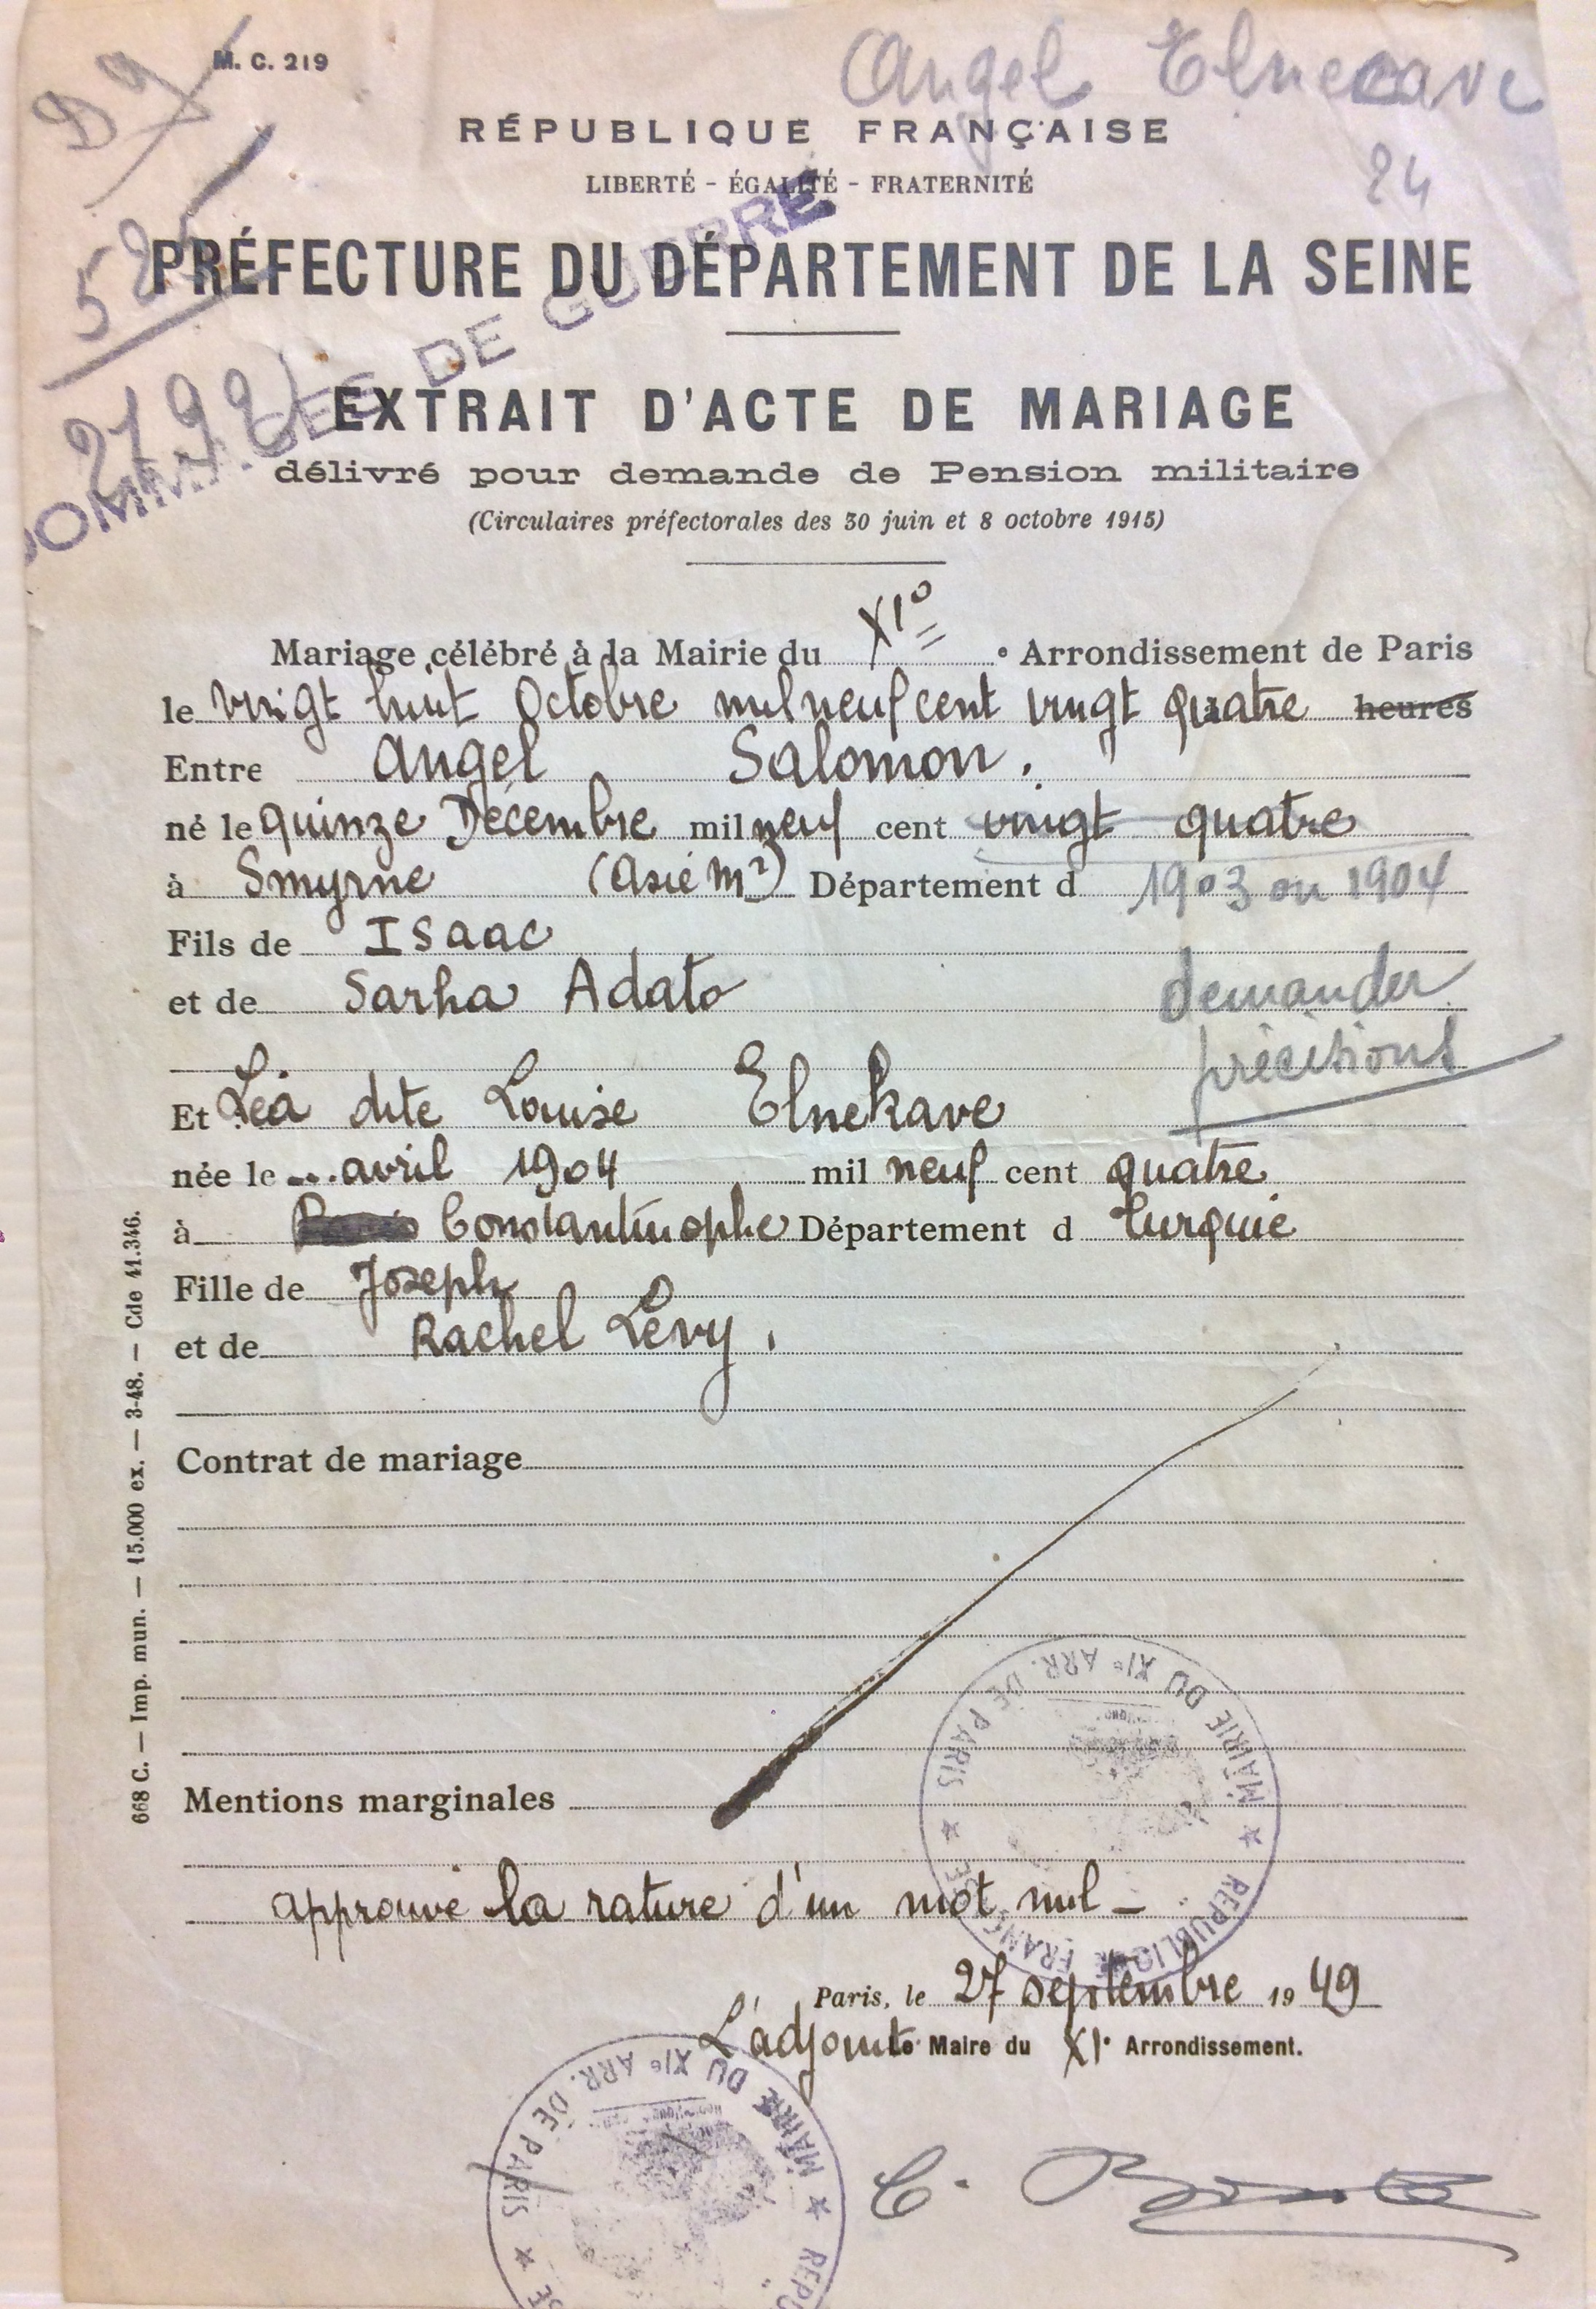 M. C. 219
Angel Elnecave
24
D9
RÉPUBLIQUE FRANÇAISE
LIBERTÉ - ÉGALITÉ - FRATERNITÉ
PRÉFECTURE DU DÉPARTEMENT DE LA SEINE
DE GUERRE
EXTRAIT D'ACTE DE MARIAGE
délivré pour demande de Pension militaire
(Circulaires préfectorales des 30 juin et 8 octobre 1915)
Mariage célébré à la Mairie du XIe e Arrondissement de Paris
le vingt huit Octobre mil neuf cent vingt quatre heures
Entre Angel Salomon.
né le quinze Décembre mil neuf cent vingt quatre
à Smyrne (Asie Mre) Département d 1903 ou 1904
Fils de Isaac
et de Sarha Adato
demander
précisions
Et Léa dite Louise Elnekave
née le ... avril 1904 mil neuf cent quatre
à Constantinople Département d turquie
Fille de Joseph
et de Rachel Lévy.
Contrat de mariage
Mentions marginales
approuvé la rature d'un mot nul -
Paris, le 27 septembre 1949
L'adjoint Le Maire du XIe Arrondissement.
MAIRIE DU XIe ARR. DE PARIS ★ RÉPUBLIQUE FRANÇAISE ★
MAIRIE DU XIe ARR. DE PARIS ★
668 C. — Imp. mun. — 15.000 ex. — 3-48. — Cde 41.346.